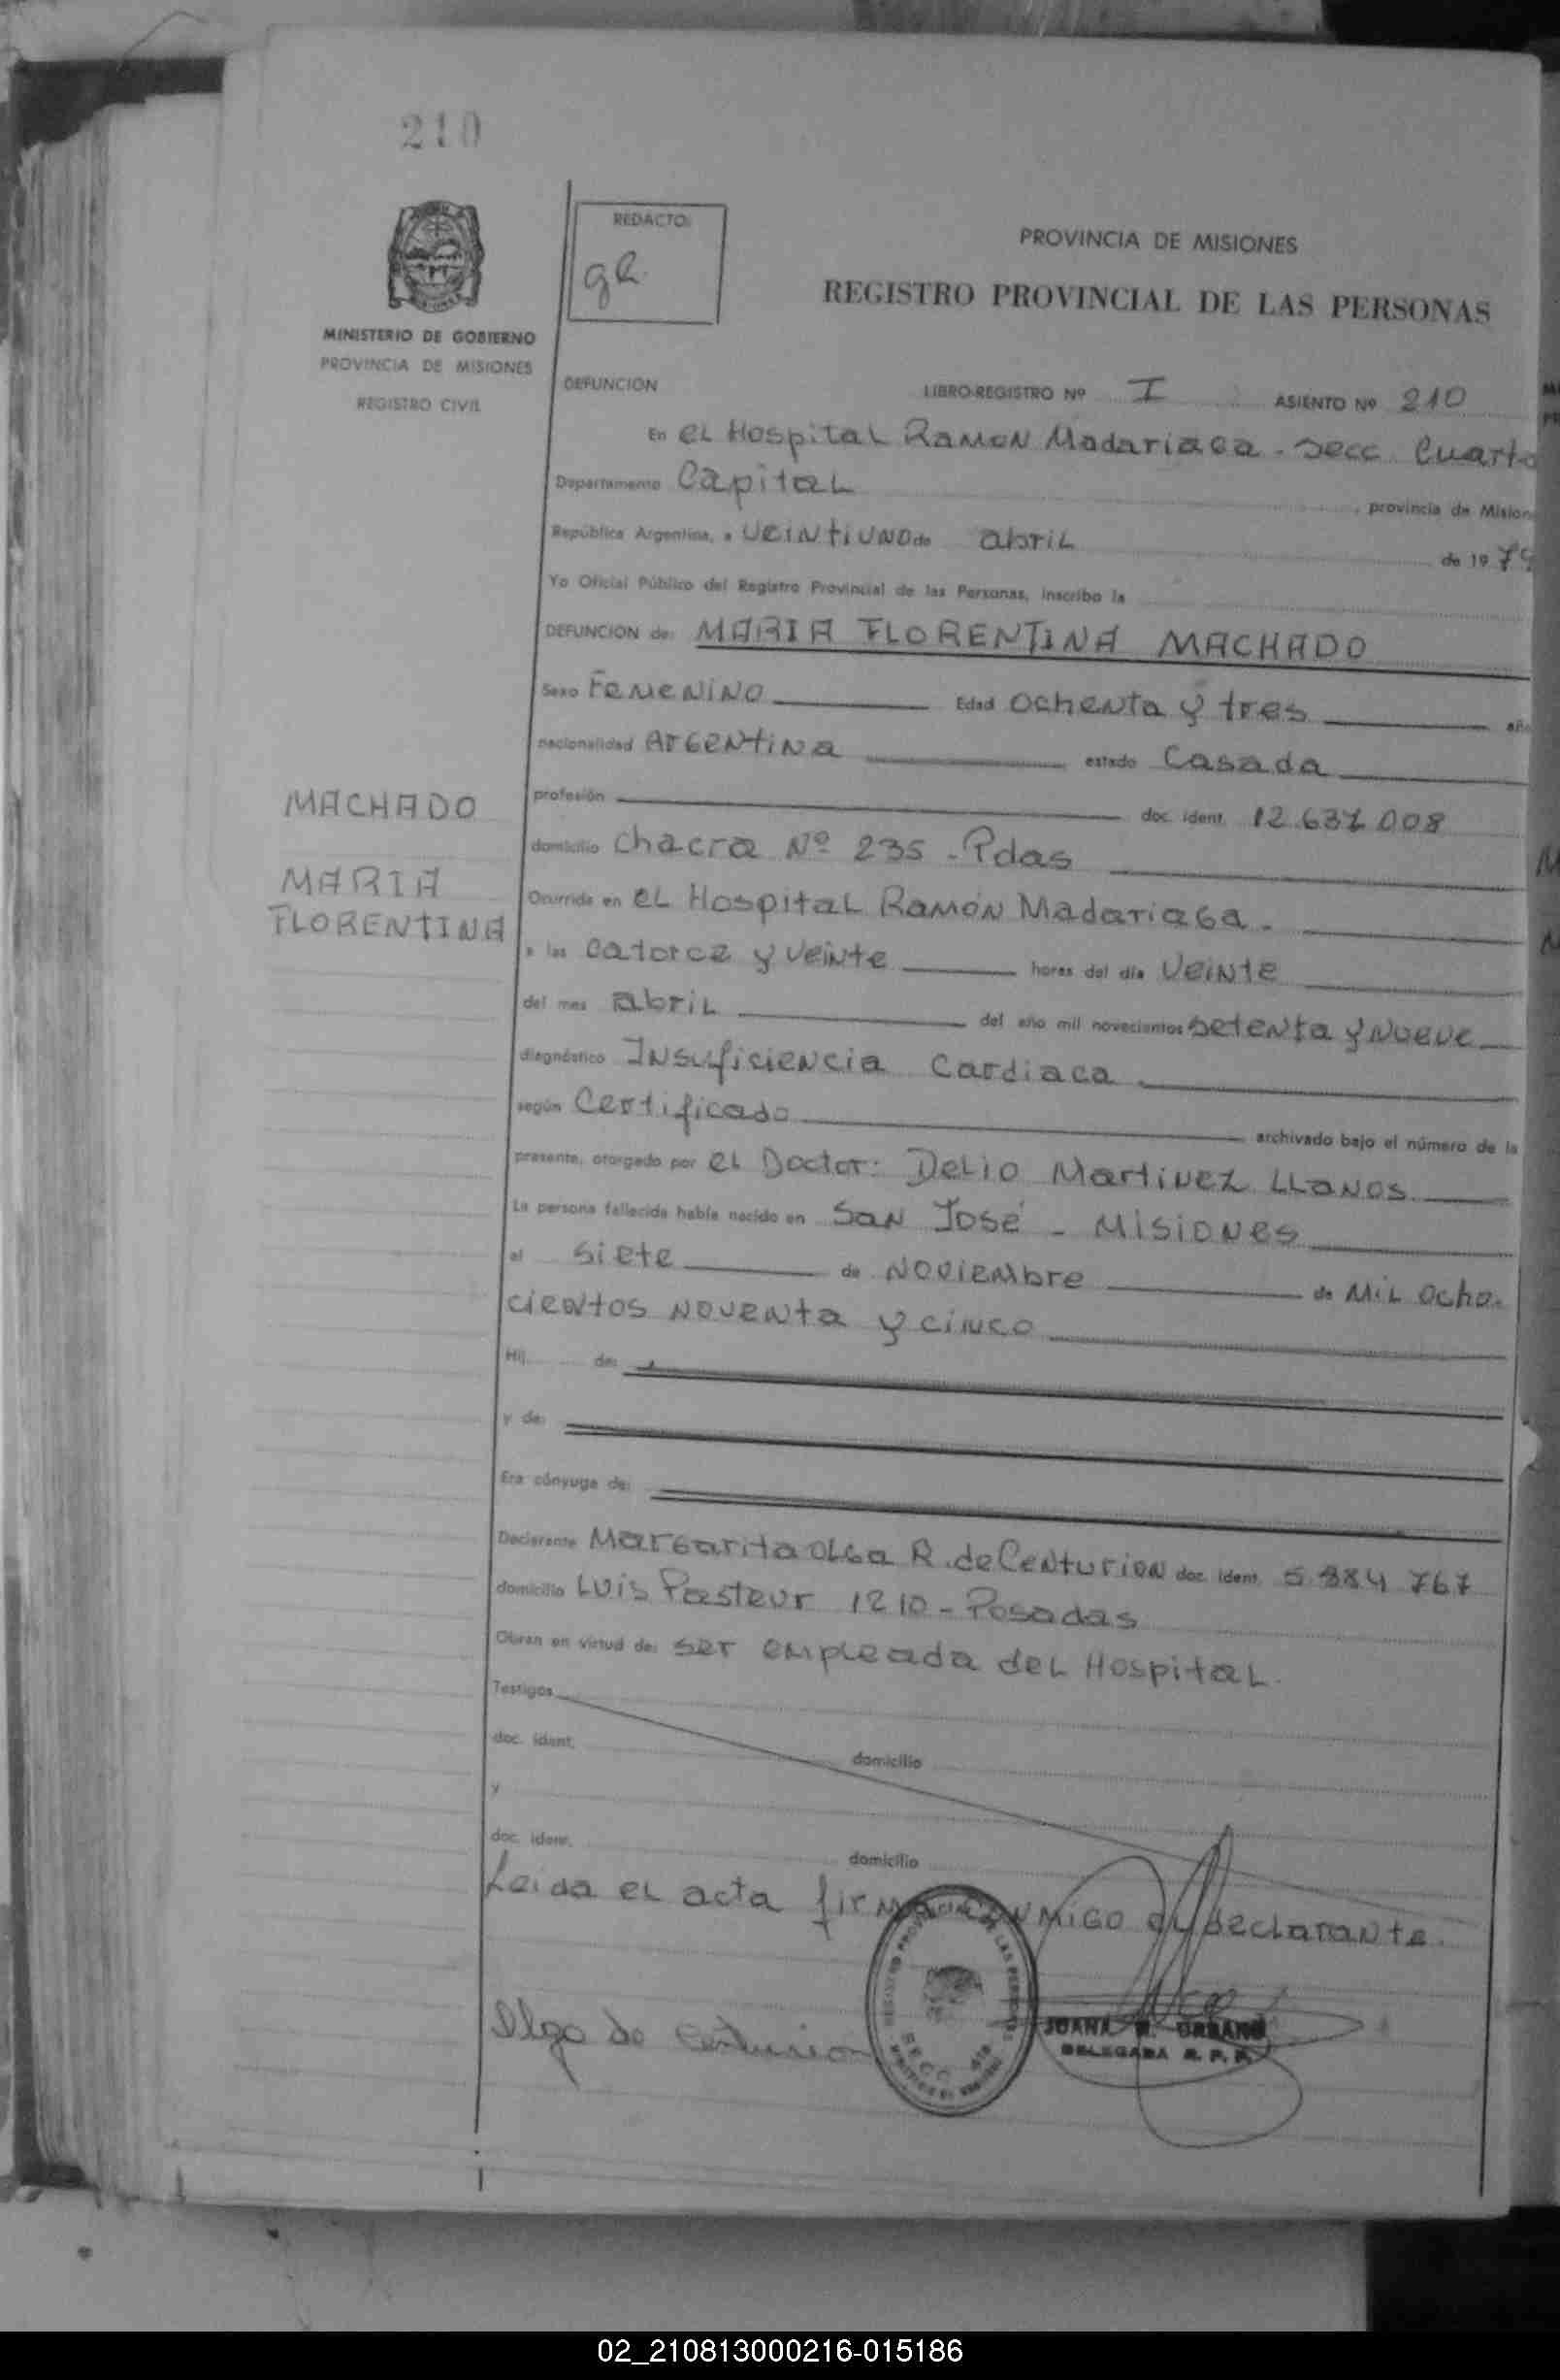 210
REDACTO:
PROVINCIA DE MISIONES
REGISTRO PROVINCIAL DE LAS PERSONAS
MINISTERIO DE GOBIERNO
PROVINCIA DE MISIONES
REGISTRO CIVIL
DEFUNCION LIBRO-REGISTRO Nº I ASIENTO Nº 210
En el Hospital Ramon Madariaga - secc Cuarta
Departamento Capital, provincia de Mision
República Argentina, a veintiuno de abril de 1979
Yo Oficial Público del Registro Provincial de las Personas, inscribo la
DEFUNCION de: MARIA FLORENTINA MACHADO
Sexo Femenino Edad ochenta y tres año
nacionalidad Argentina estado Casada
profesión doc. ident. 12.637.008
domicilio Chacra Nº 235 - Pdas
MACHADO
MARIA
FLORENTINA
Ocurrida en el Hospital Ramón Madariaga.
a las catorce y veinte horas del día veinte
del mes abril del año mil novecientos setenta y nueve
diagnóstico Insuficiencia Cardiaca
según Certificado archivado bajo el número de la
presente, otorgado por el Doctor: Delio Martinez Llanos
La persona fallecida había nacido en San José - Misiones
el siete de Noviembre de mil ocho-
cientos noventa y cinco
Hij de:
y de:
Era cónyuge de:
Declarante Margarita Olga R. de Centurion doc. ident. 5.884.767
domicilio Luis Pasteur 1210 - Posadas
Obran en virtud de: ser empleada del Hospital.
Testigos
doc. ident. domicilio
y
doc. ident. domicilio
Leida el acta firma conmigo el declarante.
Olga de Centurion
JUANA URBANO
DELEGADA R. P. P.
02_210813000216-015186